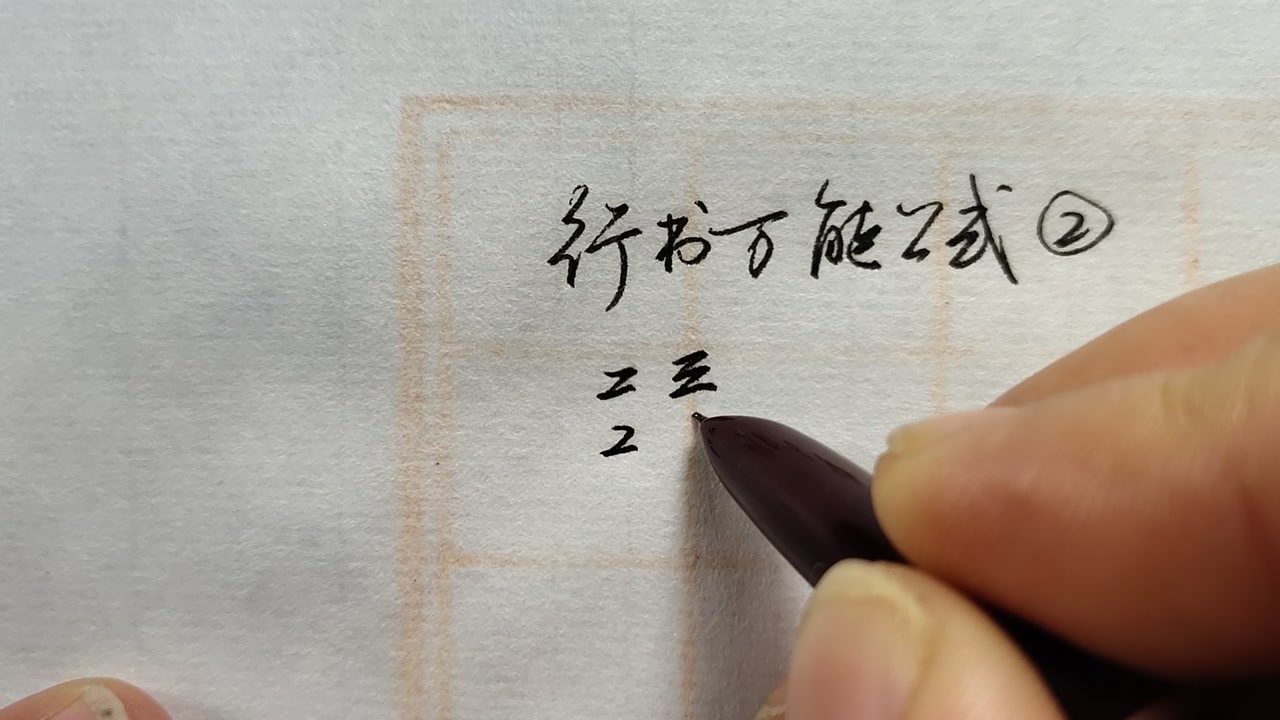 行书万能公式②
二 三
二